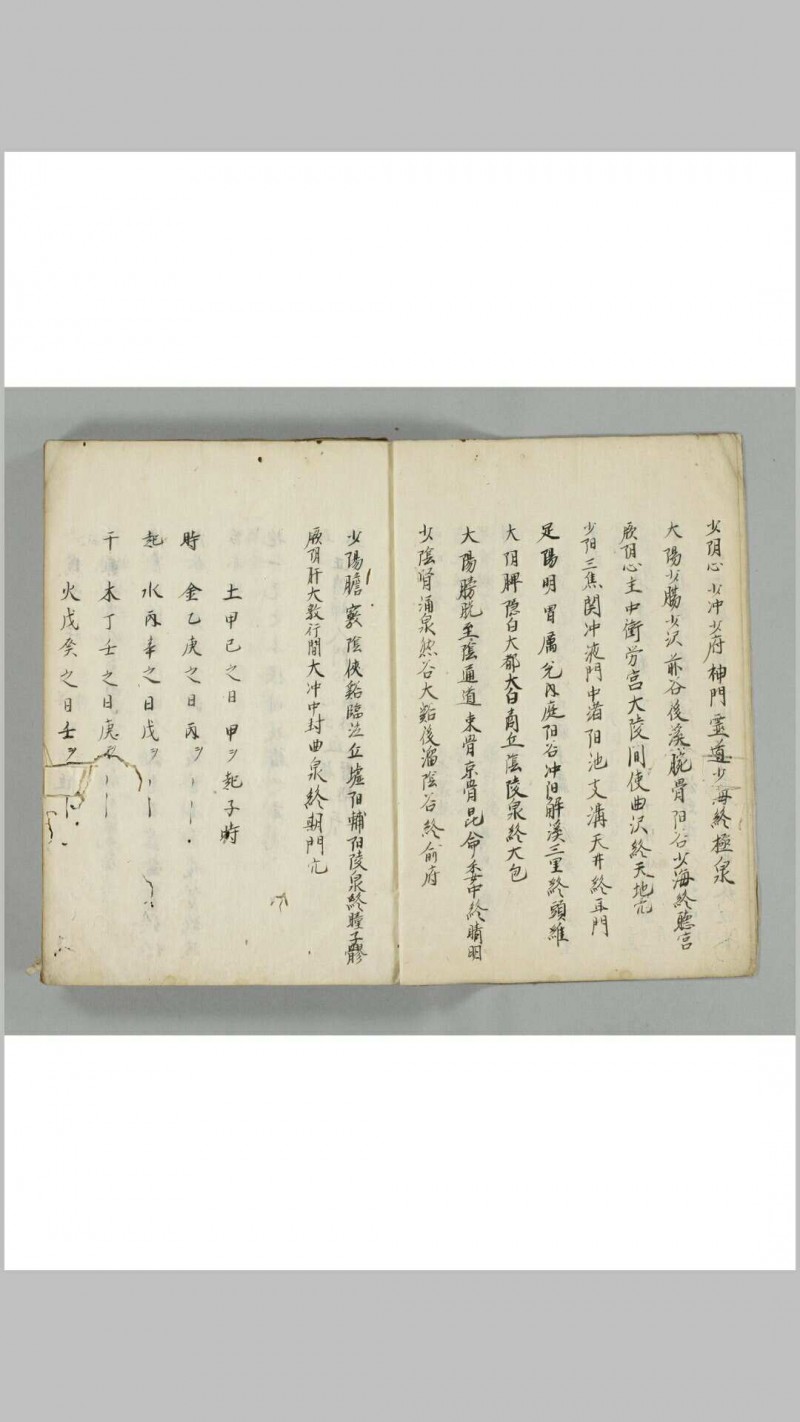 少阴心少冲少府神門霊道少海終極泉
大陽少腸少沢前谷後溪腕骨阳谷少海終聴宮
厥阴心主中衝労宮大陵间使曲沢終天地穴
少阳三焦関冲液門中渚阳池支溝天井終耳門
足陽明胃厲兌内庭阳谷冲阳解溪三里終頭維
大阴脾隠白大都大白商丘陰陵泉終大包
大陽膀胱至陰通道束骨京骨昆命委中終睛明
少陰腎涌泉然谷大谿後溜陰谷終俞府
少陽膽竅陰侠谿臨泣丘墟阳輔阳陵泉終瞳子髎
厥阴肝大敦行間大冲中封曲泉終期門穴
土甲己之日甲ヲ起子時
時 金乙庚之日丙ヲ
起 水丙辛之日戊ヲ
干 木丁壬之日庚ヲ
火戊癸之日壬ヲ